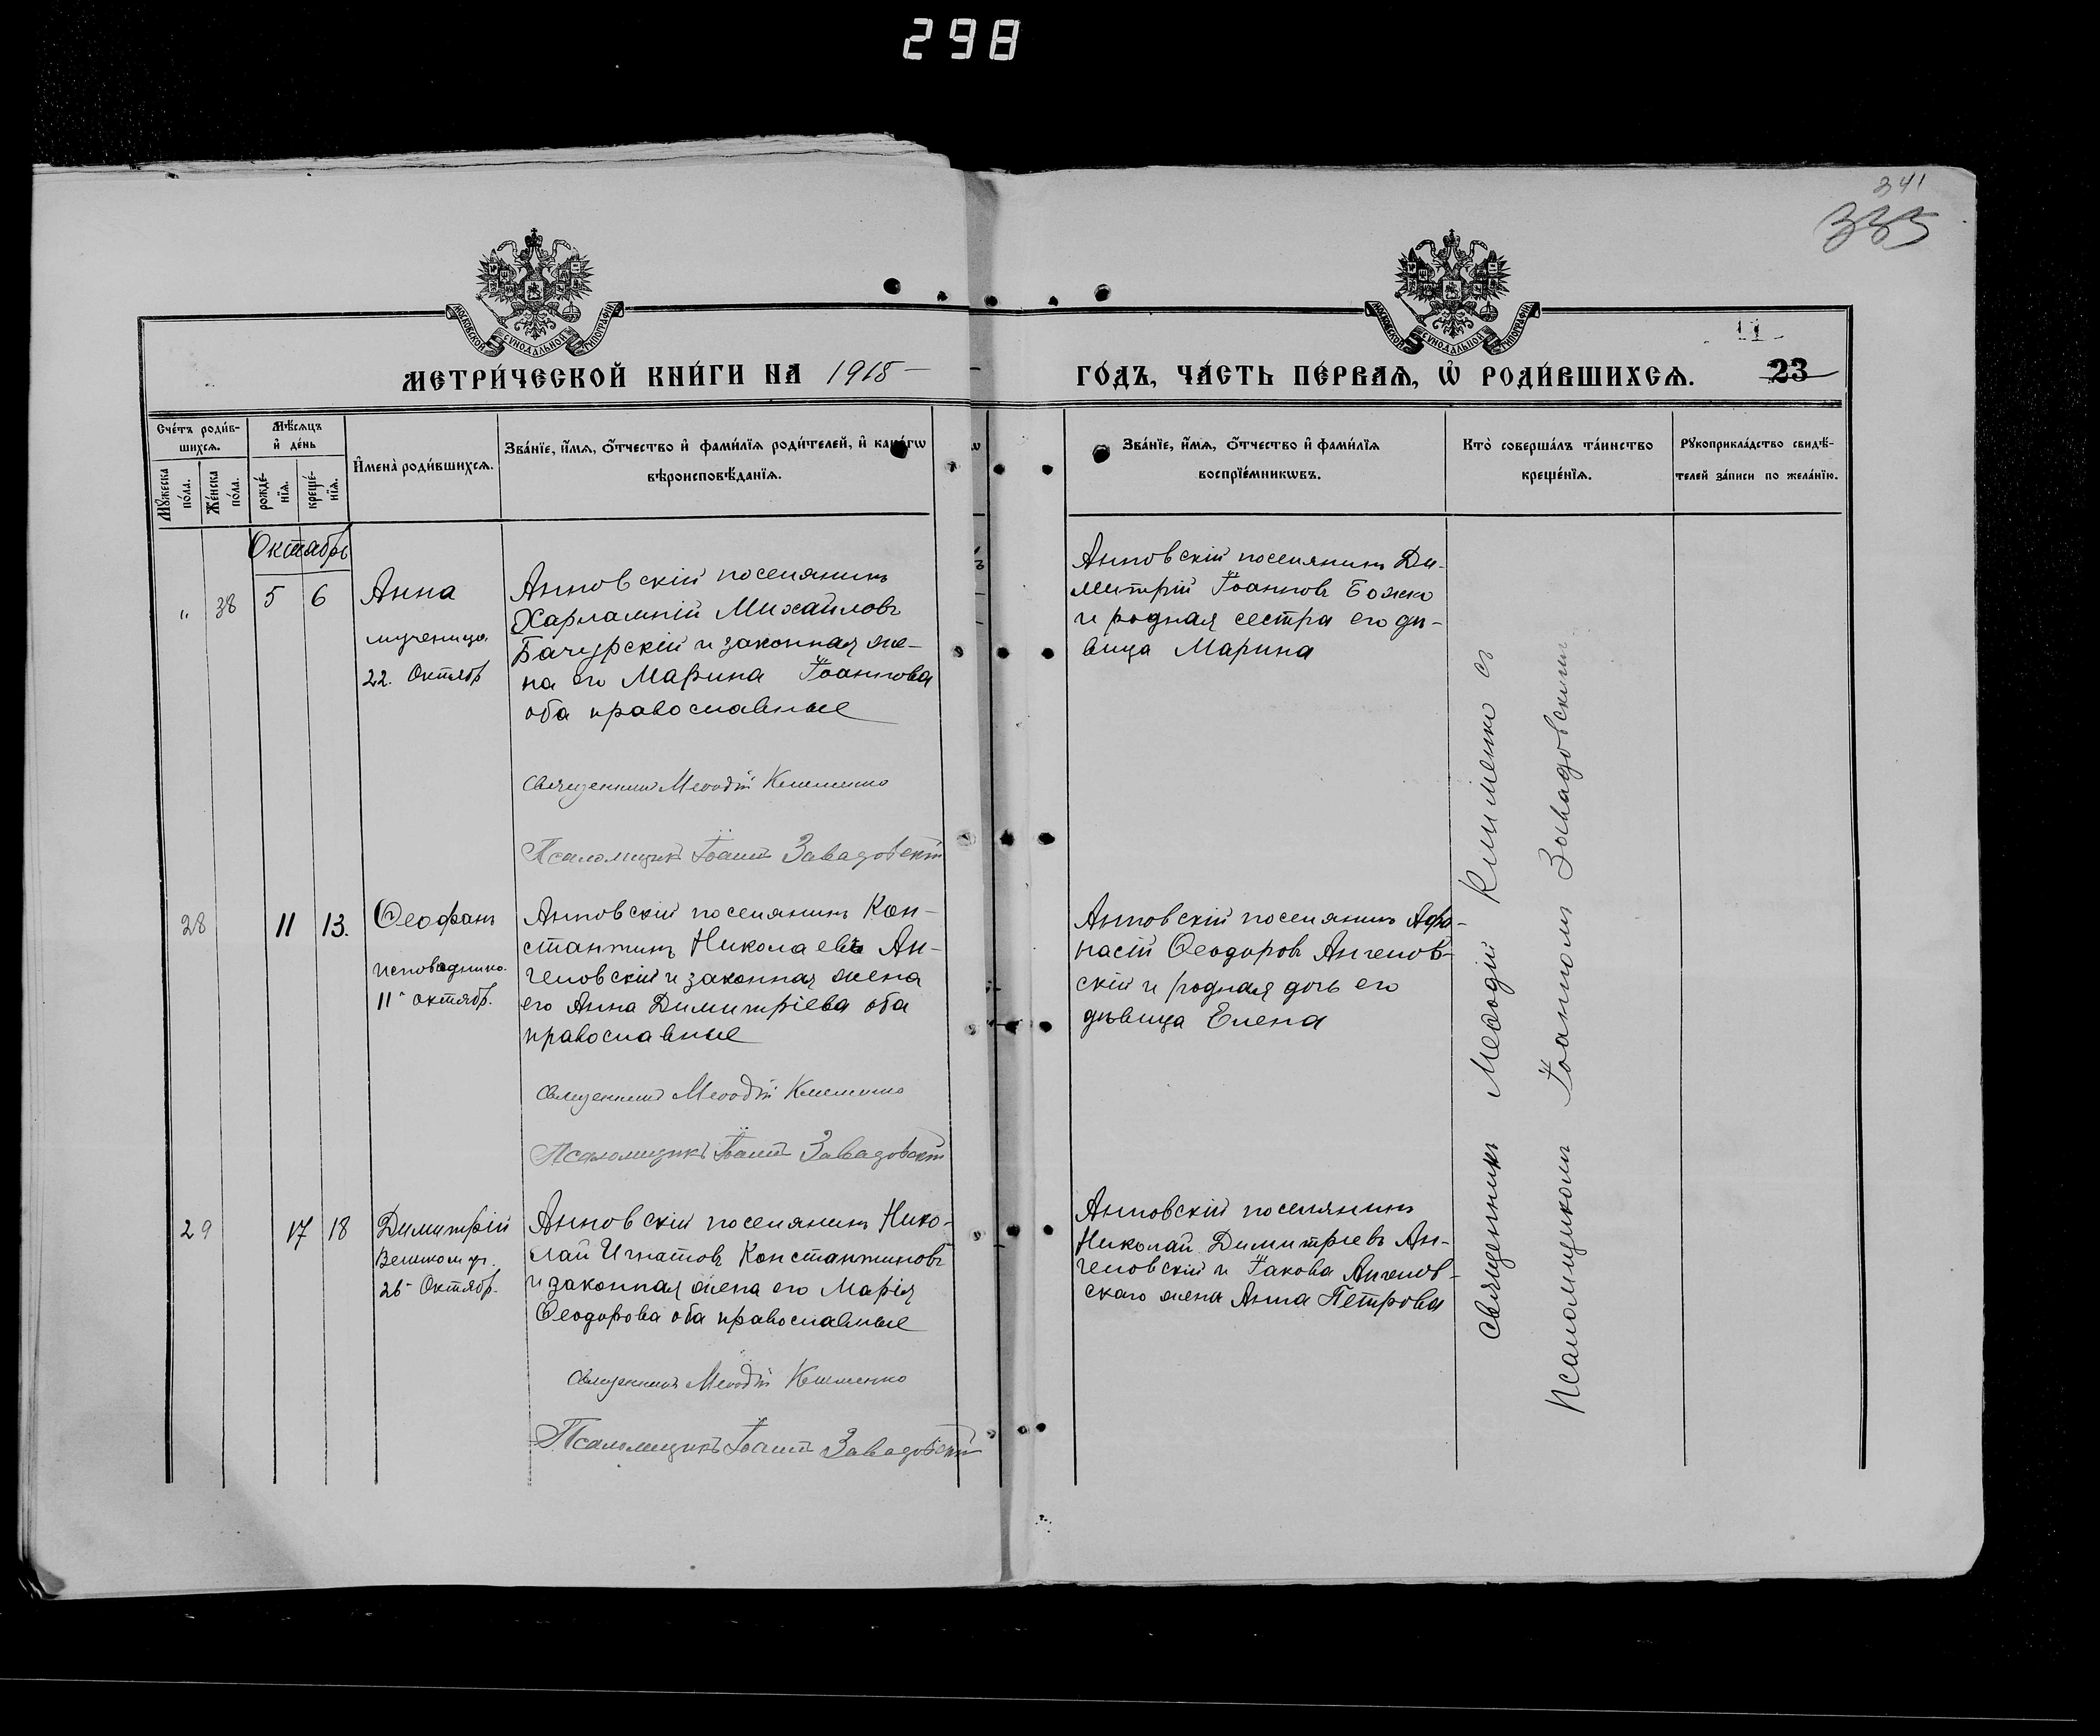 298
341
335
МОСКОВСКОЙ СѴНОДАЛЬНОЙ ТИПОГРАФІИ
МОСКОВСКОЙ СѴНОДАЛЬНОЙ ТИПОГРАФІИ
МЕТРИ́ЧЕСКОЙ КНИ́ГИ НА 1918
ГО́ДЪ, ЧА́СТЬ ПЕ́РВАѦ, Ѡ҆ РОДИ́ВШИХСѦ. 23
Сче́тъ роди́в-
шихсѧ.
Мꙋ́жеска по́ла.
Же́нска по́ла.
Мѣ́сѧцъ
и҆ де́нь
рожде́-
нїѧ.
креще́-
нїѧ.
И҆мена̀ роди́вшихсѧ.
Зва́нїе, и҆́мѧ, ѻ҆́тчество и҆ фами́лїѧ роди́телей, и҆ како́гѡ
вѣроисповѣ́данїѧ.
Зва́нїе, и҆́мѧ, ѻ҆́тчество и҆ фами́лїѧ
воспрїе́мникѡвъ.
Кто̀ соверша́лъ та́инство
креще́нїѧ.
Рꙋкоприкла́дство свидѣ́-
телей за́писи по жела́нїю.
Октябрь
" 38 5 6
Анна
мученица
22. Октябр
Анновскій поселянинъ
Харлампій Михаиловъ
Бачурскій и законная же-
на его Марина Іоаннова
оба православные
Священникъ Меѳодій Клименко
Псаломщикъ Іоаннъ Завадовскій
Анновскій поселянинъ Ди-
митрій Іоанновъ Божко
и родная сестра его дѣ-
вица Марина
28 11 13.
Ѳеофанъ
исповѣдника
11 октябр.
Анновскій поселянинъ Кон-
стантинъ Николаевъ Ан-
геловскій и законная жена
его Анна Димитріева оба
православные
Священникъ Меѳодій Клименко
Псаломщикъ Іоаннъ Завадовскій
Анновскій поселянинъ Афа-
насій Ѳеодоровъ Ангелов-
скій и родная дочь его
дѣвица Елена
29 17 18
Димитрій
Великомуч.
26 Октябр.
Анновскій поселянинъ Нико-
лай Игнатовъ Константиновъ
и законная жена его Марія
Ѳеодорова оба православные
Священникъ Меѳодій Клименко
Псаломщикъ Іоаннъ Завадовскій
Анновскій поселянинъ
Николай Димитріевъ Ан-
геловскій и Іакова Ангелов-
скаго жена Анна Петрова
Священникъ Меѳодій Клименко съ
Псаломщикомъ Іоанномъ Завадовскимъ